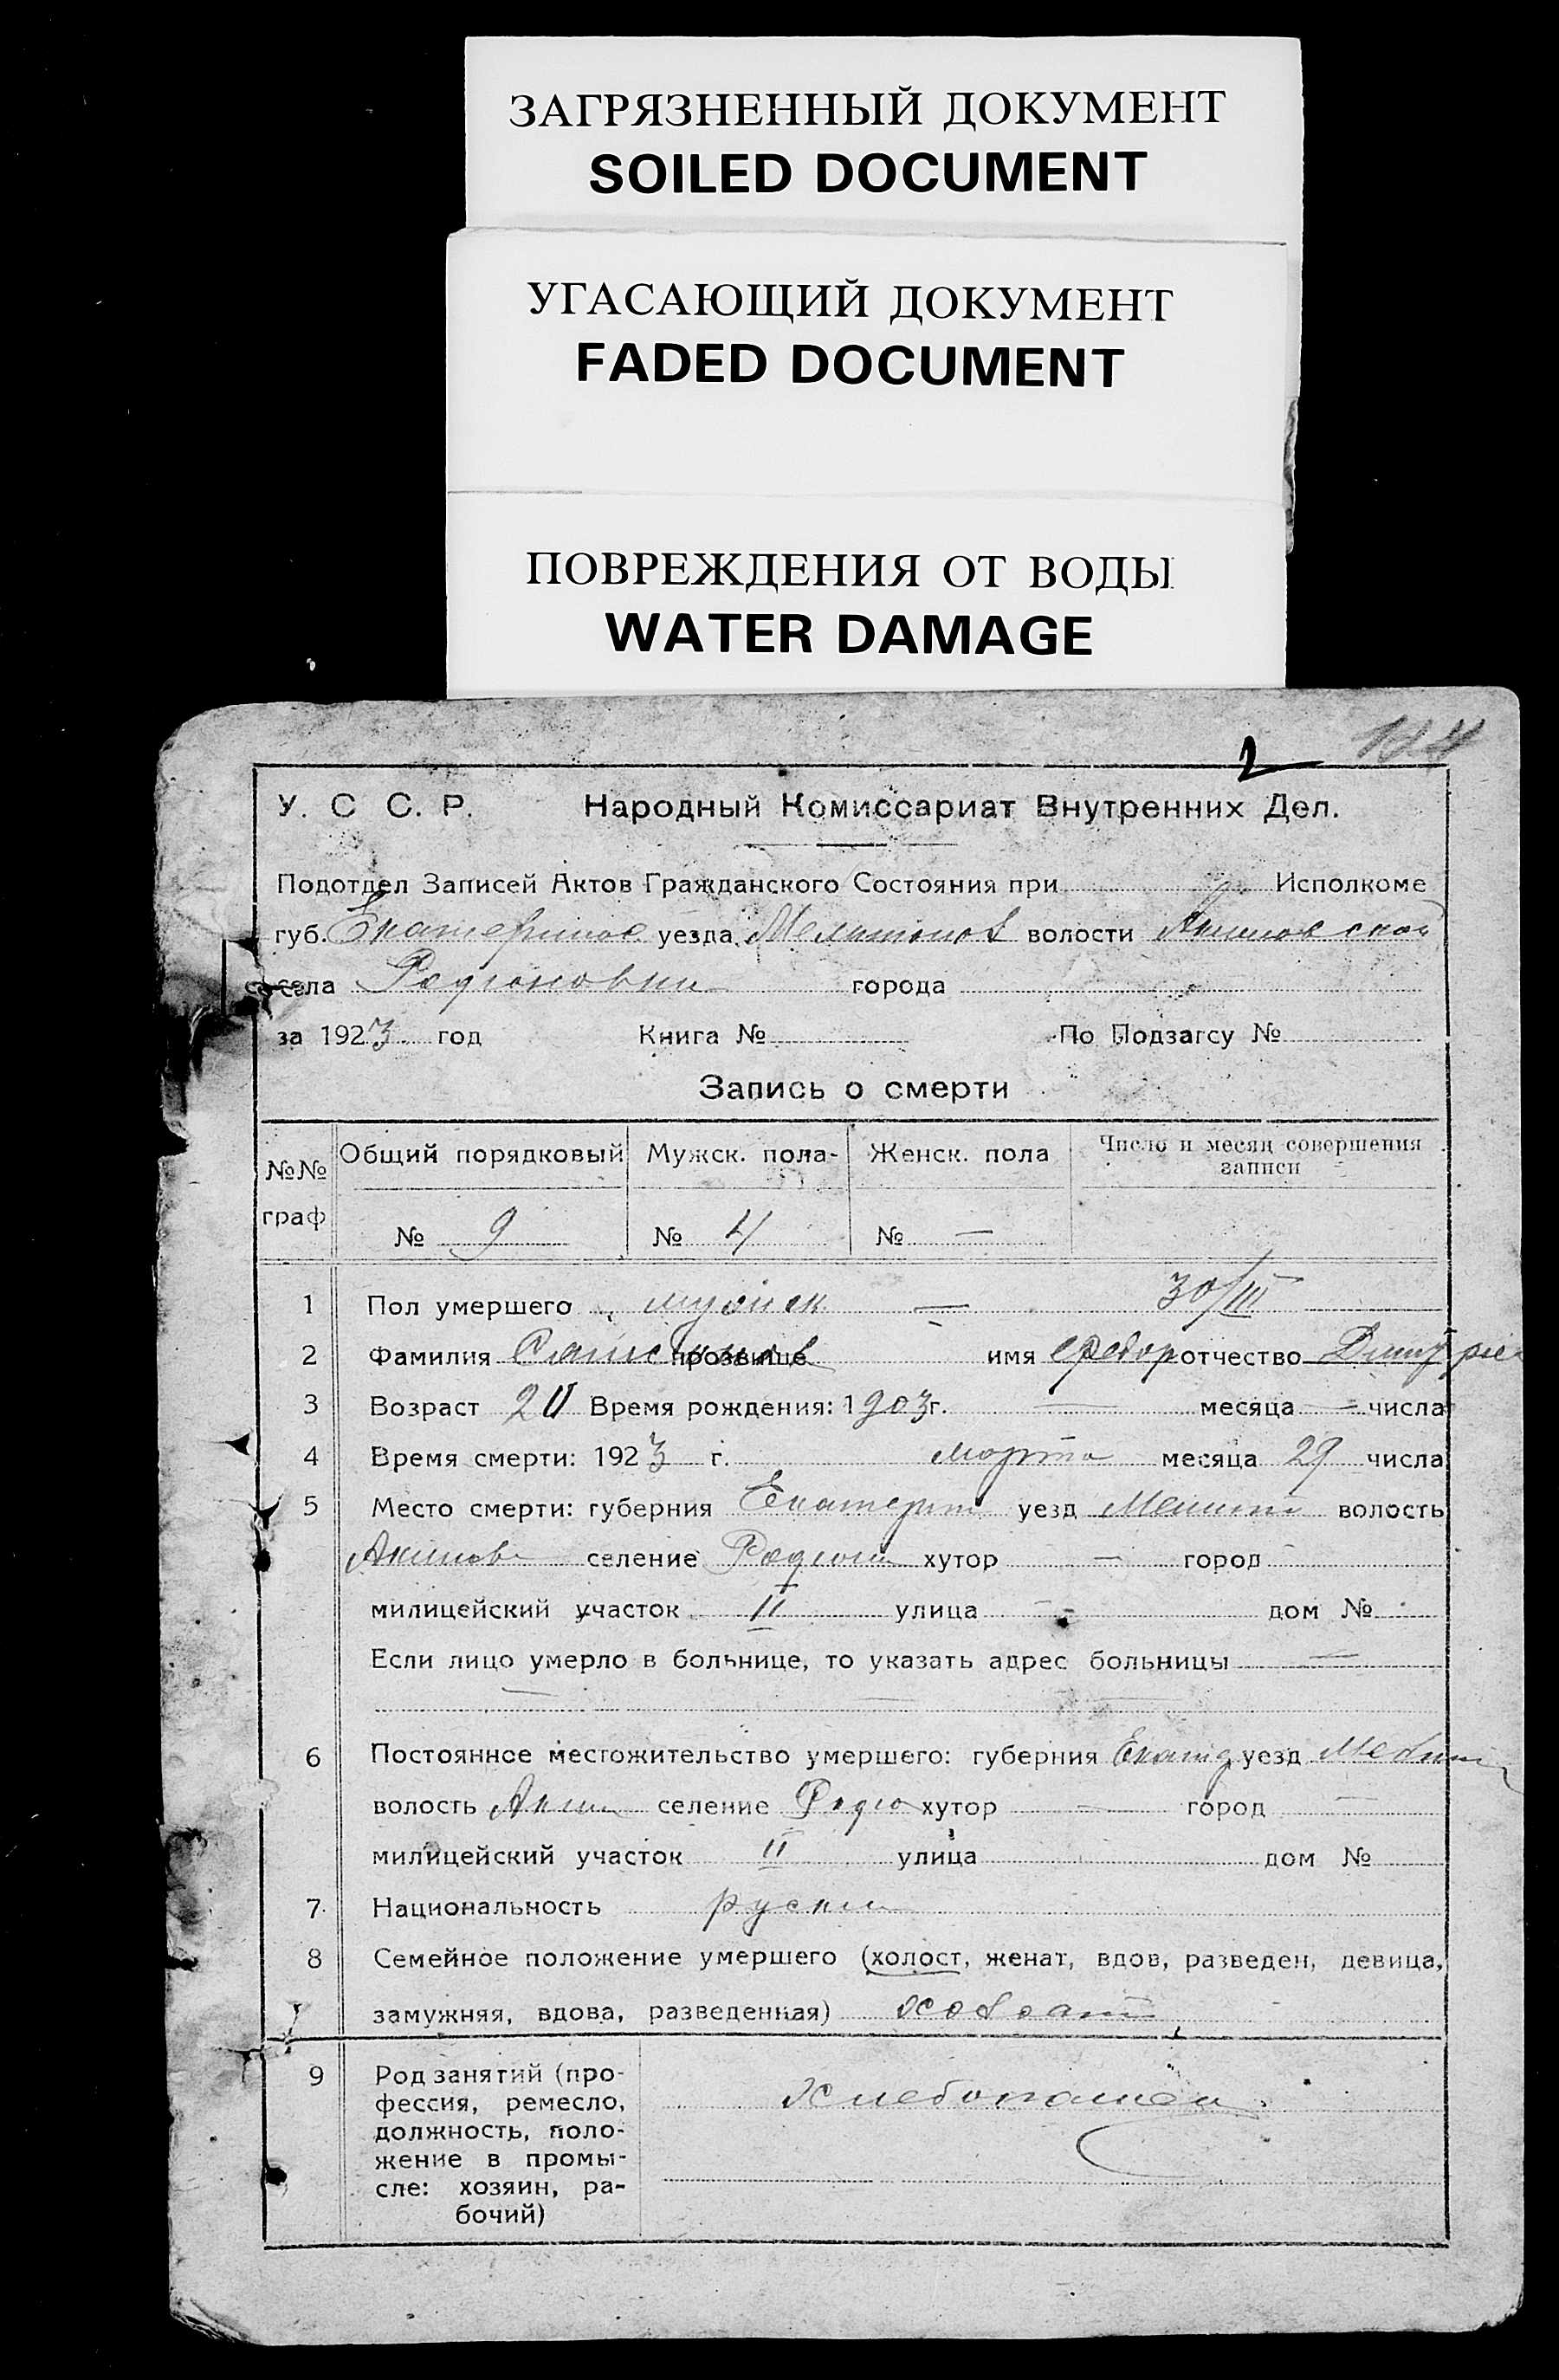 ЗАГРЯЗНЕННЫЙ ДОКУМЕНТ
SOILED DOCUMENT
УГАСАЮЩИЙ ДОКУМЕНТ
FADED DOCUMENT
ПОВРЕЖДЕНИЯ ОТ ВОДЫ
WATER DAMAGE
2
У. С С. Р. Народный Комиссариат Внутренних Дел.
Подотдел Записей Актов Гражданского Состояния при Исполкоме
губ. Екатеринос уезда волости Акимовской
села Родионовки города
за 1923 год Книга № По Подзагсу №
Запись о смерти
№№ граф Общий порядковый Мужск. пола Женск. пола Число и месяц совершения записи
№ 9 № 4 № —
1 Пол умершего мужск — 30/III
2 Фамилия прозвище имя Федор отчество
3 Возраст 20 Время рождения: 1903 г. — месяца — числа
4 Время смерти: 1923 г. марта месяца 29 числа
5 Место смерти: губерния Екатерин уезд волость
Акимов селение Родион хутор — город
милицейский участок II улица — дом №
Если лицо умерло в больнице, то указать адрес больницы —
6 Постоянное местожительство умершего: губерния Екатер уезд
волость Аким селение Родио хутор — город —
милицейский участок II улица дом №
7 Национальность руски
8 Семейное положение умершего (холост, женат, вдов, разведен, девица,
замужняя, вдова, разведенная)
9 Род занятий (про-
фессия, ремесло,
должность, поло-
жение в промы-
сле: хозяин, ра-
бочий)
хлебопашец